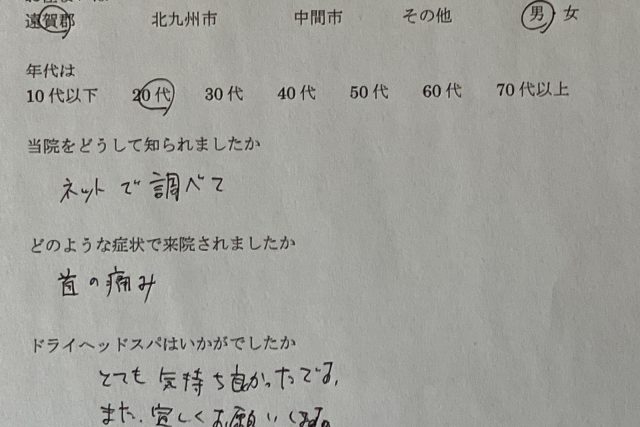 遠賀郡 北九州市 中間市 その他 男・女
年代は
10代以下 20代 30代 40代 50代 60代 70代以上
当院をどうして知られましたか
ネットで調べて
どのような症状で来院されましたか
首の痛み
ドライヘッドスパはいかがでしたか
とても気持ち良かったです。
また、宜しくお願いします。